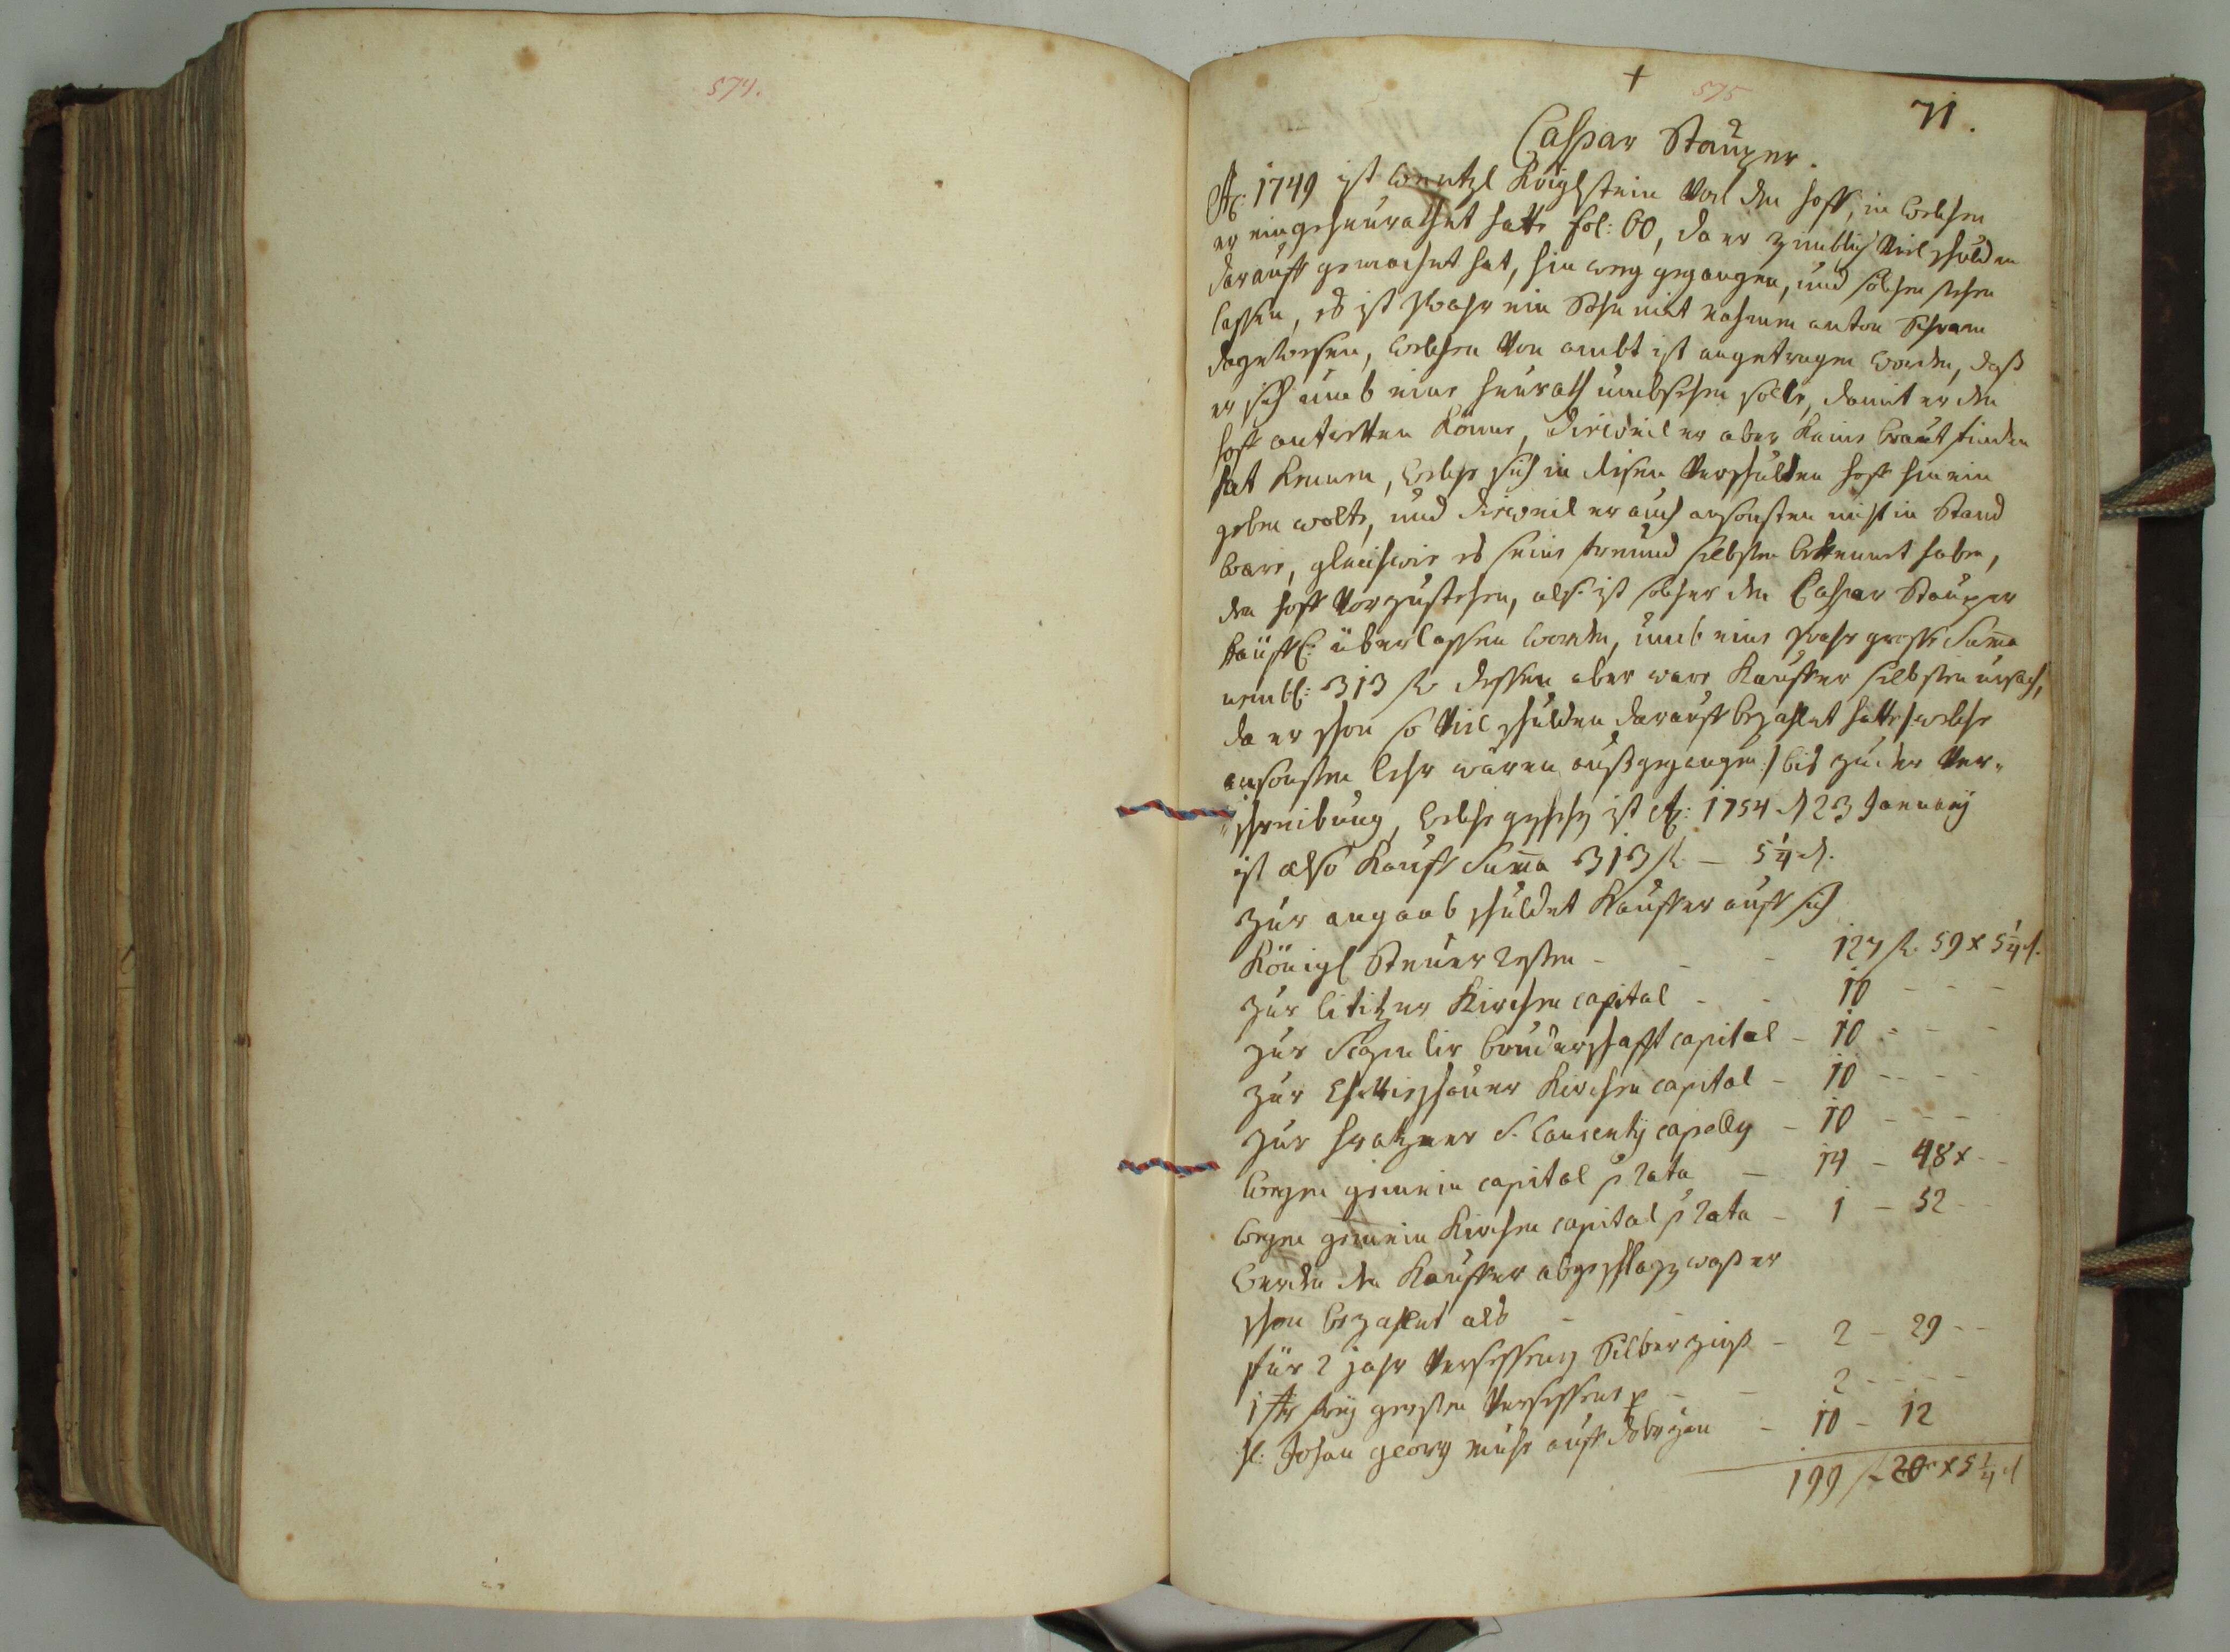 574.
575
71.
Caspar Stauper.
Aō: 1749 ist Wentzl Königstein von den hoff, in welchen
er eingeheurathet hatte fol: 60, da er zimblich viel schulden
darauff gemachet hat, hinweg gegangen, und solchen stehen
lassen, es ist zwahr ein Sohn mit nahmen anton Schram
dagewesen, welchen von ambt ist angetragen worden, daß
er sich umb eine heurath umbsehen solle, damit er den
hoff antretten könne, dieweil er aber keine braut finden
hat kennen, welche sich in disen verschulten hoff hinein
geben wolte, und dieweil er auch ansonsten nicht in Stand
ware, gleichwie es seine freund selbsten bekennet haben,
den hoff vorzustehen, als ist solcher den Caspar Stauper
käuffl: überlassen worden, umb eine zwahr grosse Summa
nembl: 313 fl dessen aber ware Kauffer selbsten ursach,
da er schon so viel schulden darauff bezahlet hatte /: welche
ansonsten lehr wären außgegangen :/ bis zu der ver-
schreibung, welche geschehen ist Aō: 1754 d 23 January
ist also Kauff Summa 313 fl. — 5¼ d.
Zur angaab schuldet Kauffer auff sich
Königl Steuer resten - - - 127 fl. 59 x 5¼ d.
Zur lititzer Kirchen capital - - 10 - - -
zur Scapulir bruderschafft capital - 10 - - -
zur Chotieschauer Kirchen capital - 10 - - -
zur S. Laurentij capelln - 10 - - -
wegen gemein capital p rata — 14 - 48 x - -
wegen gemein Kirchen capital p rata - 1 - 52 - -
werden den Kauffer abgeschlagen was er
schon bezahlet als -
für 2 jahr versessenen Silber zinß - 2 - 29 - -
1 gersten versessene - - 2 - - - -
H: Johan georg auff dobrzan - 10 - 12
199 fl 20 x 5¼ d